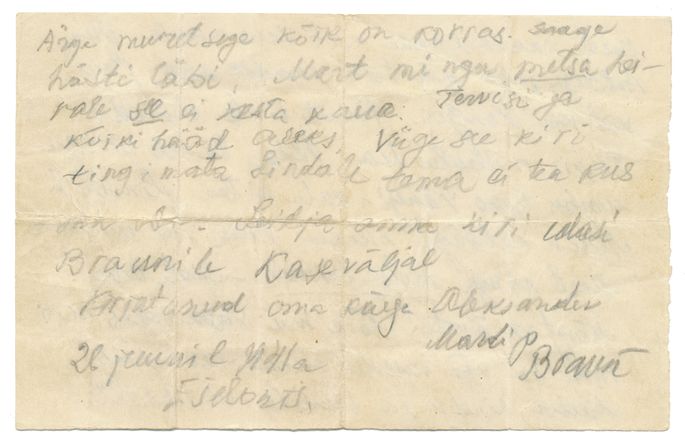 Ärge muretsege kõik on korras. saage
hästi läbi, Mart minga metsa hei-
rale see ei kesta kaua. Tervisi ja
kõiki hääd aseks, Viige see kiri
tingimata Lindale tema ei tea kus
Leidja anna kiri edasi
Braunile Kaseväljal
Kirjutanud oma käega Aleksander
Mardi p Braun
26 juunil 1941a
Eselonis,